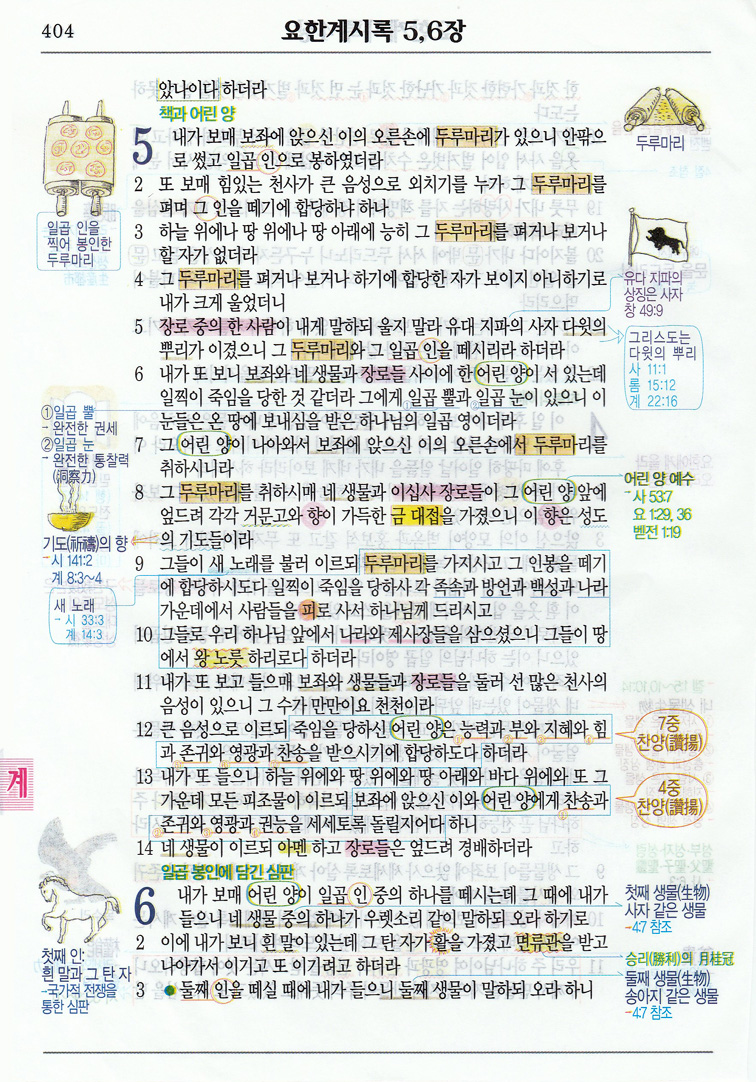 404
요한계시록 5,6장
았나이다 하더라
책과 어린 양
5 내가 보매 보좌에 앉으신 이의 오른손에 두루마리가 있으니 안팎으
로 썼고 일곱 인으로 봉하였더라
2 또 보매 힘있는 천사가 큰 음성으로 외치기를 누가 그 두루마리를
펴며 그 인을 떼기에 합당하냐 하나
3 하늘 위에나 땅 위에나 땅 아래에 능히 그 두루마리를 펴거나 보거나
할 자가 없더라
4 그 두루마리를 펴거나 보거나 하기에 합당한 자가 보이지 아니하기로
내가 크게 울었더니
5 장로 중의 한 사람이 내게 말하되 울지 말라 유대 지파의 사자 다윗의
뿌리가 이겼으니 그 두루마리와 그 일곱 인을 떼시리라 하더라
6 내가 또 보니 보좌와 네 생물과 장로들 사이에 한 어린 양이 서 있는데
일찍이 죽임을 당한 것 같더라 그에게 일곱 뿔과 일곱 눈이 있으니 이
눈들은 온 땅에 보내심을 받은 하나님의 일곱 영이더라
7 그 어린 양이 나아와서 보좌에 앉으신 이의 오른손에서 두루마리를
취하시니라
8 그 두루마리를 취하시매 네 생물과 이십사 장로들이 그 어린 양 앞에
엎드려 각각 거문고와 향이 가득한 금 대접을 가졌으니 이 향은 성도
의 기도들이라
9 그들이 새 노래를 불러 이르되 두루마리를 가지시고 그 인봉을 떼기
에 합당하시도다 일찍이 죽임을 당하사 각 족속과 방언과 백성과 나라
가운데에서 사람들을 피로 사서 하나님께 드리시고
10 그들로 우리 하나님 앞에서 나라와 제사장들을 삼으셨으니 그들이 땅
에서 왕 노릇 하리로다 하더라
11 내가 또 보고 들으매 보좌와 생물들과 장로들을 둘러 선 많은 천사의
음성이 있으니 그 수가 만만이요 천천이라
12 큰 음성으로 이르되 죽임을 당하신 어린 양은 능력과 부와 지혜와 힘
과 존귀와 영광과 찬송을 받으시기에 합당하도다 하더라
13 내가 또 들으니 하늘 위에와 땅 위에와 땅 아래와 바다 위에와 또 그
가운데 모든 피조물이 이르되 보좌에 앉으신 이와 어린 양에게 찬송과
존귀와 영광과 권능을 세세토록 돌릴지어다 하니
14 네 생물이 이르되 아멘 하고 장로들은 엎드려 경배하더라
일곱 봉인에 담긴 심판
6 내가 보매 어린 양이 일곱 인 중의 하나를 떼시는데 그 때에 내가
들으니 네 생물 중의 하나가 우렛소리 같이 말하되 오라 하기로
2 이에 내가 보니 흰 말이 있는데 그 탄 자가 활을 가졌고 면류관을 받고
나아가서 이기고 또 이기려고 하더라
3 둘째 인을 떼실 때에 내가 들으니 둘째 생물이 말하되 오라 하니
일곱 인을
찍어 봉인한
두루마리
①일곱 뿔
→ 완전한 권세
②일곱 눈
→ 완전한 통찰력
(洞察力)
기도(祈禱)의 향
→ 시 141:2
계 8:3~4
새 노래
→ 시 33:3
계 14:3
계
첫째 인:
흰 말과 그 탄 자
→국가적 전쟁을
통한 심판
두루마리
유다 지파의
상징은 사자
창 49:9
그리스도는
다윗의 뿌리
사 11:1
롬 15:12
계 22:16
어린 양 예수
→ 사 53:7
요 1:29, 36
벧전 1:19
7중
찬양(讚揚)
4중
찬양(讚揚)
첫째 생물(生物)
사자 같은 생물
→4:7 참조
승리(勝利)의 月桂冠
둘째 생물(生物)
송아지 같은 생물
→4:7 참조